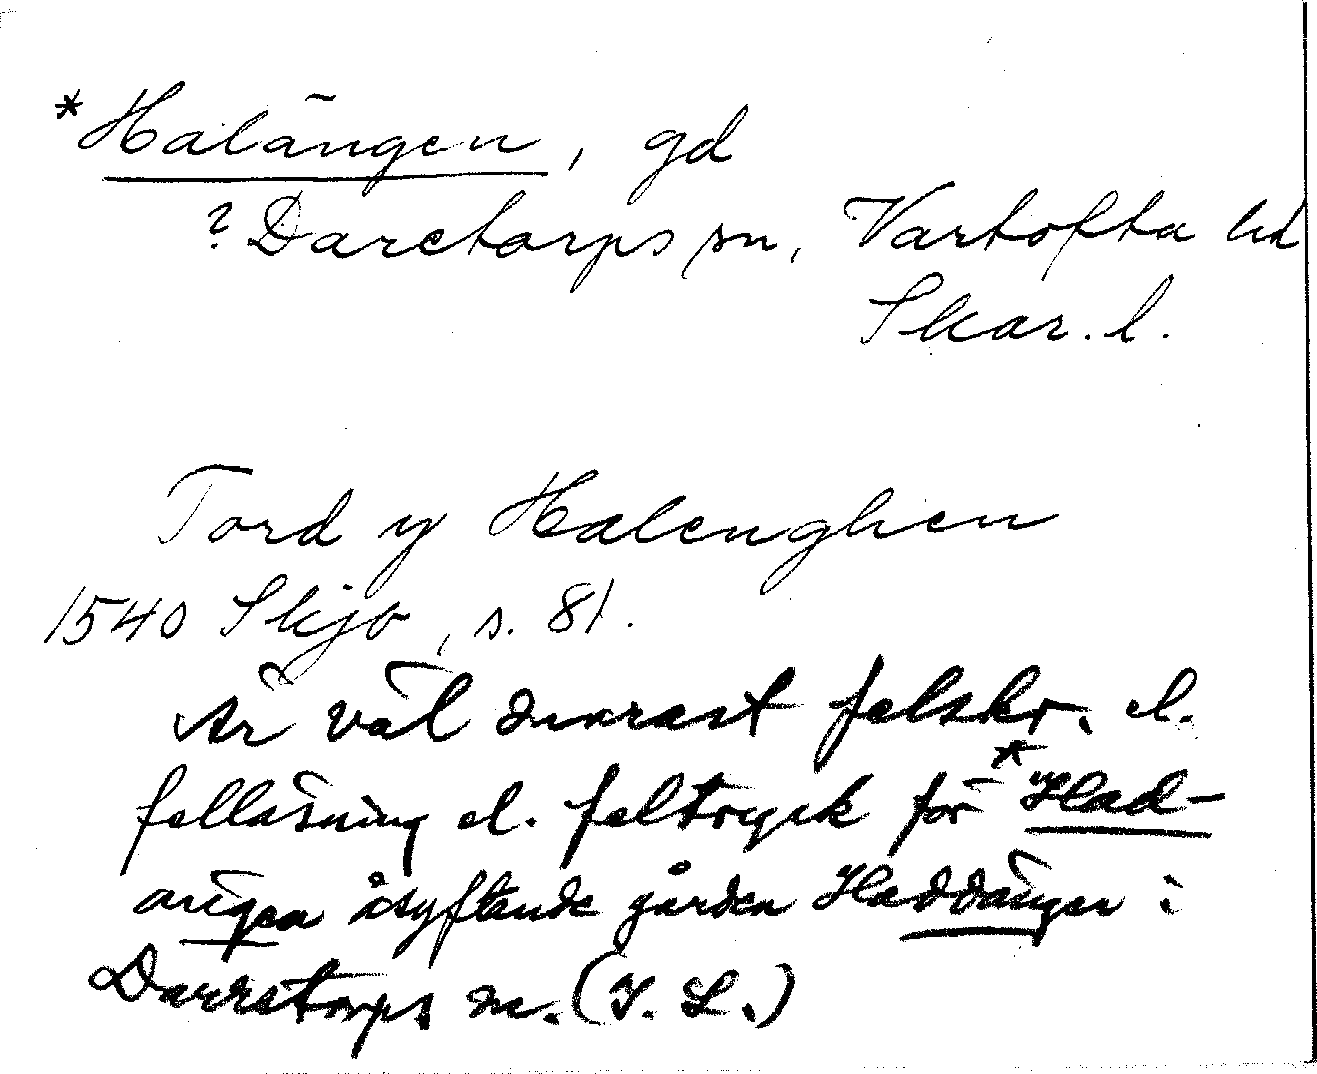 *Halängen, gd
? Daretorps sn, Vartofta hd
Skar. l.
Tord y Halenghen
1540 Skjb, s. 81.
Är väl snarast felskr. el.
felläsning el. feltryck för *Had-
ängen åsyftande gården Haddängen i
Daretorps sn. (I. L.)